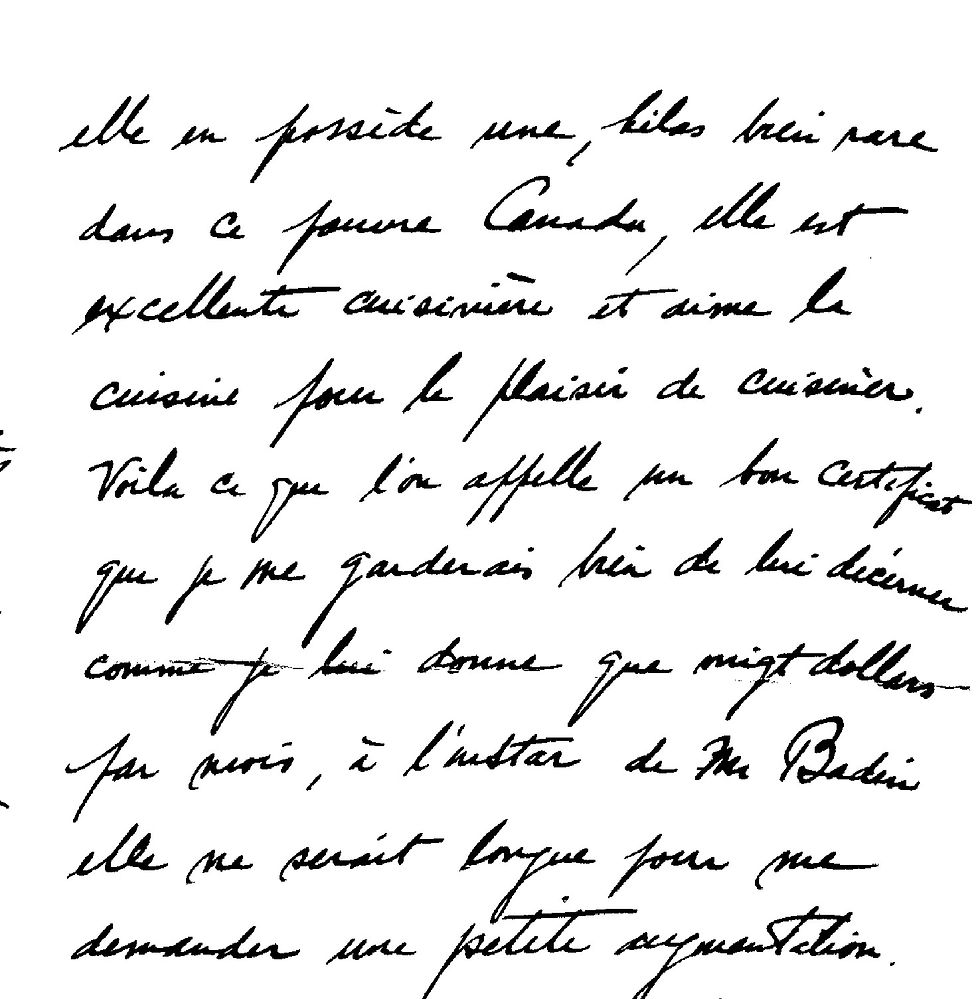 elle en possède une, hélas bien rare
dans ce pauvre Canada, elle est
excellente cuisinière et aime la
cuisine pour le plaisir de cuisiner.
Voila ce que l'on appelle un bon certificat
que je me garderais bien de lui décerner
comme je lui donne que vingt dollars
par mois, à l'instar de Mr Badin
elle ne serait longue pour me
demander une petite augmentation.